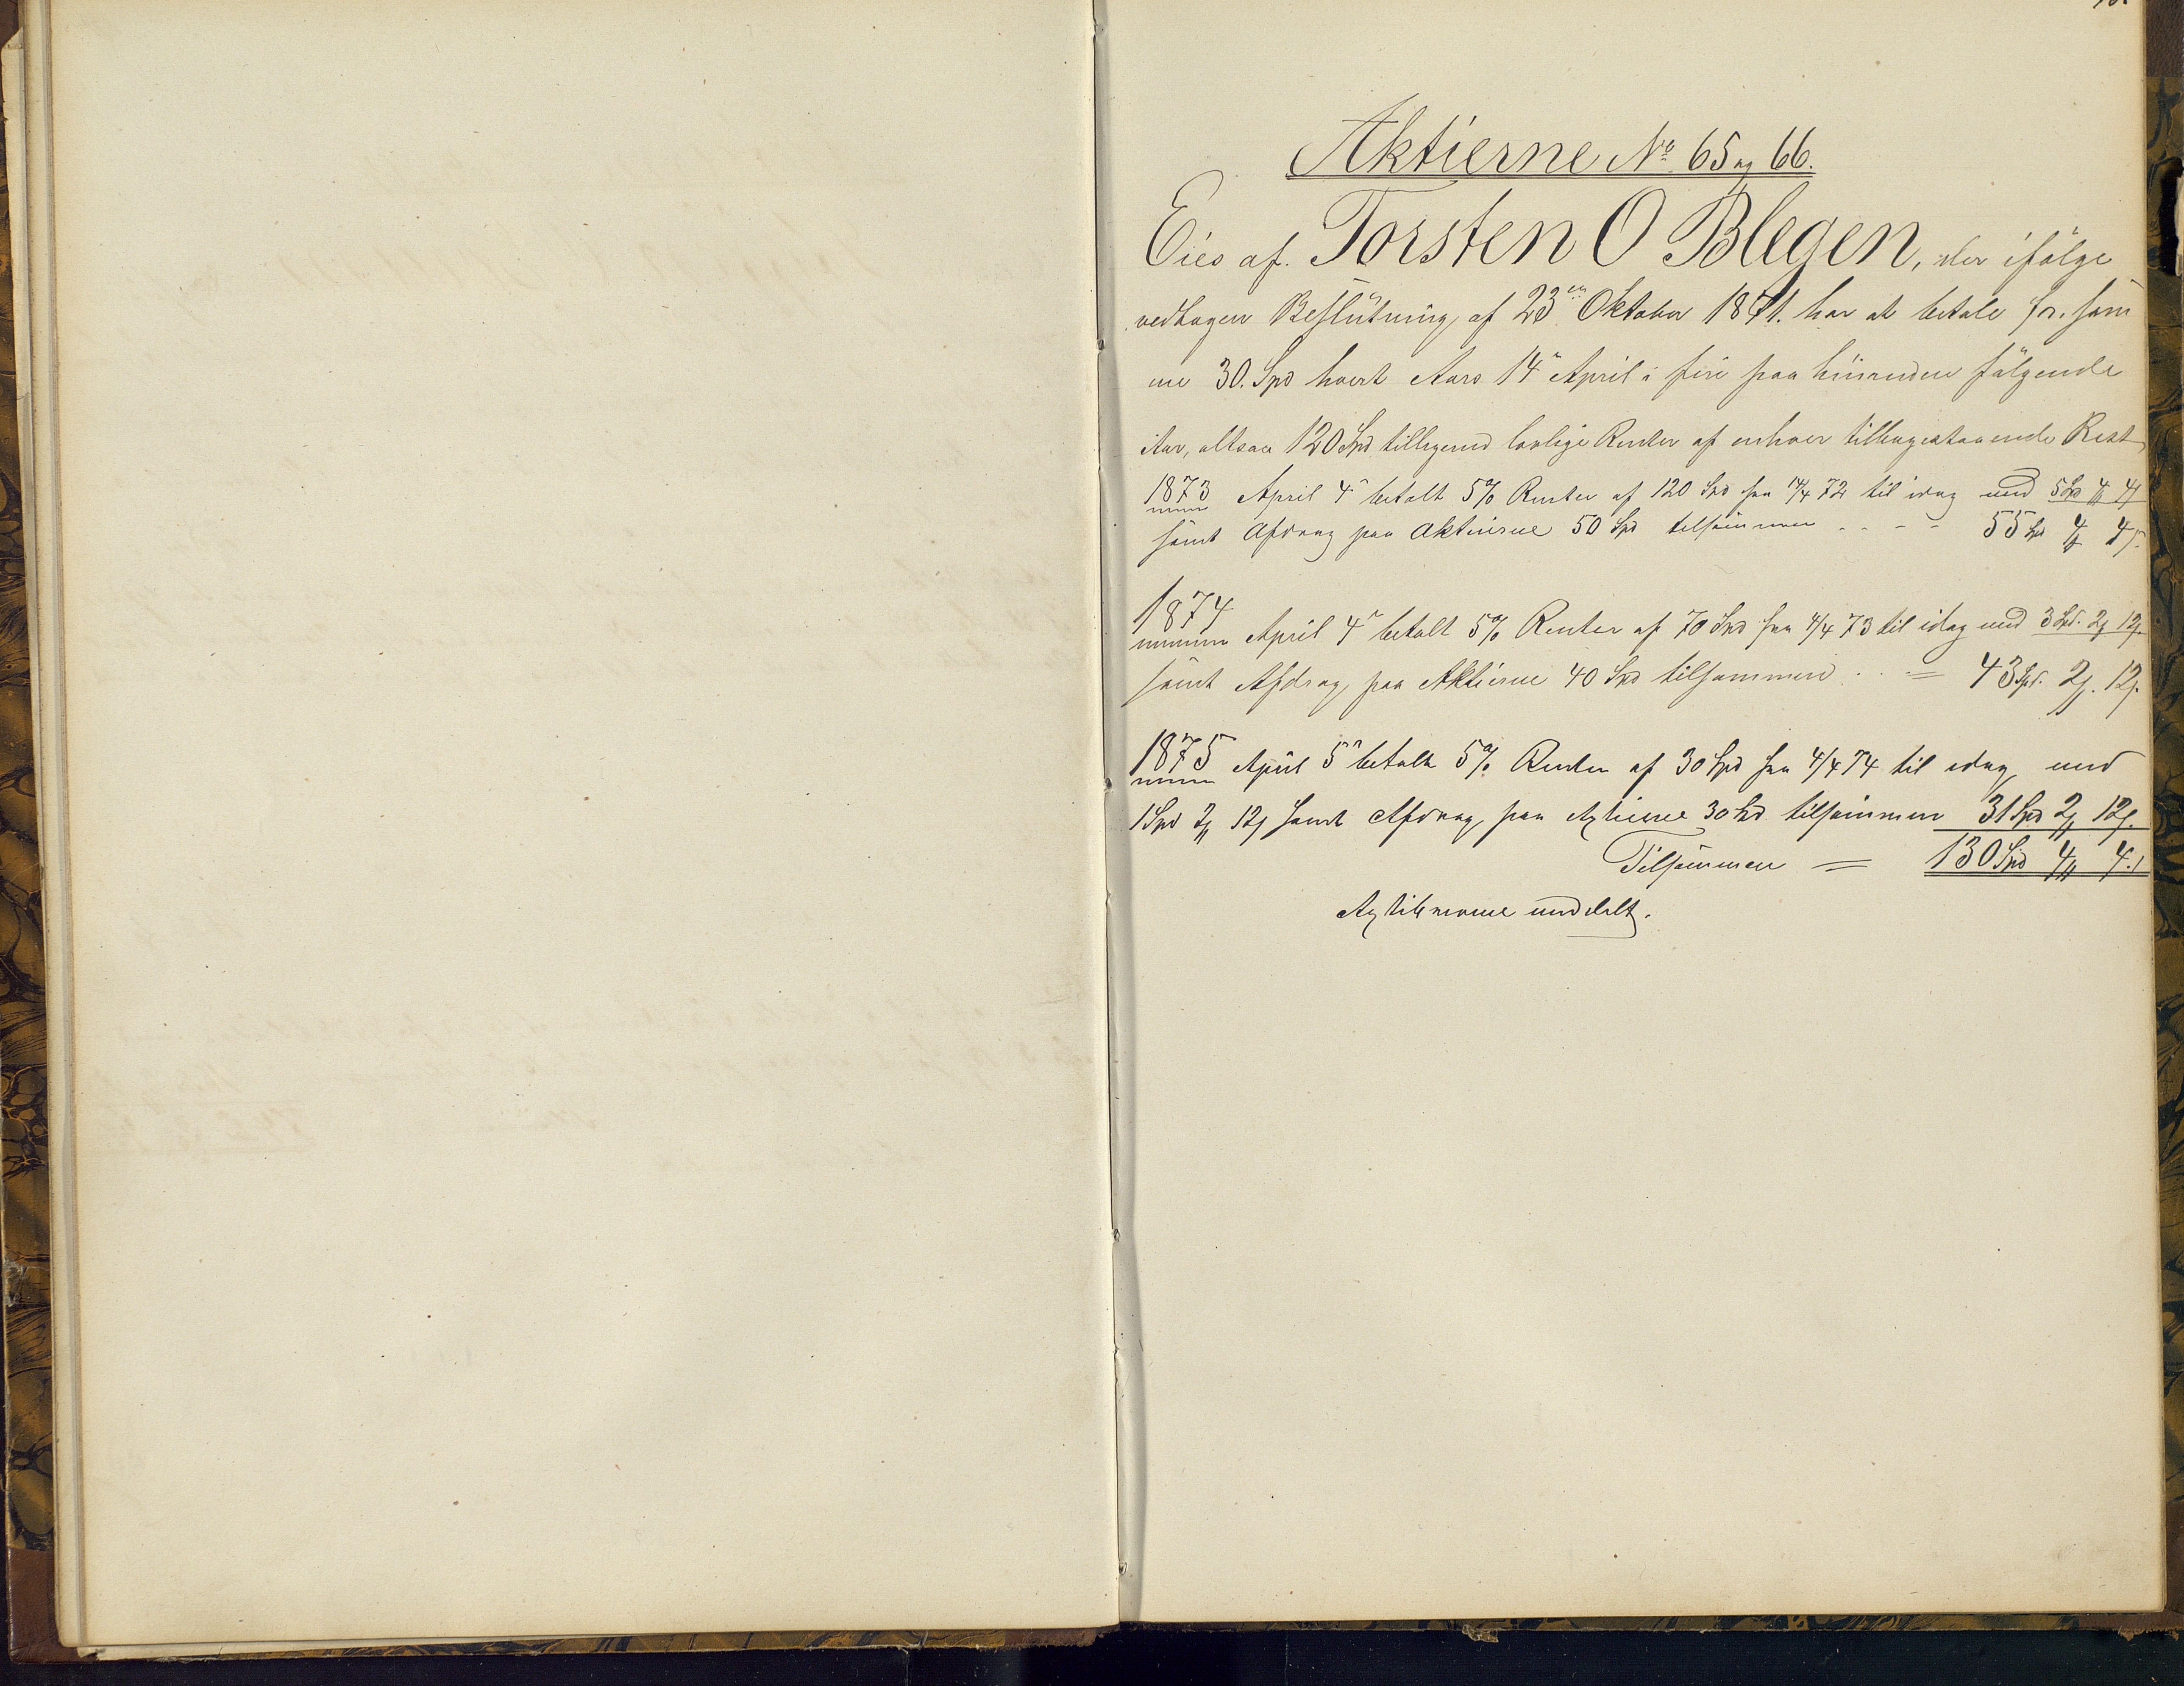 Aktierne No 65 og 66.
Eies af Torsten O Blegen, der ifølge
vedtagen Beslutning af 23en Oktober 1871. har at betale for sam
me 30. Spd hvert Aars 14n April i fire paa hinanden følgende
Aar, altsaa 120 Spd tilligemed lovlige Renter af enhver tilbagestaaende Rest
1873 April 4n betalt 5% Renter af 120 Spd fra 14/4 72 til idag med 5 Spd 4 4
samt Afdrag paa Aktierne 50 Spd tilsammen - - - - 55 Spd 4 4
1874 April 4n betalt 5% Renter af 70 Spd fra 4/4 73 til idag med 3 Spd. 2 12
samt Afdrag paa Aktierne 40 Spd tilsammen . . = 43 Spd. 2. 12.
1875 April 5n betalt 5% Renter af 30 Spd fra 4/4 74 til idag med
1 Spd 2 12 samt Afdrag paa Aktierne 30 Spd tilsammen 31 Spd 2 12.
Tilsammen = 130 Spd 4 4.
meddelt.